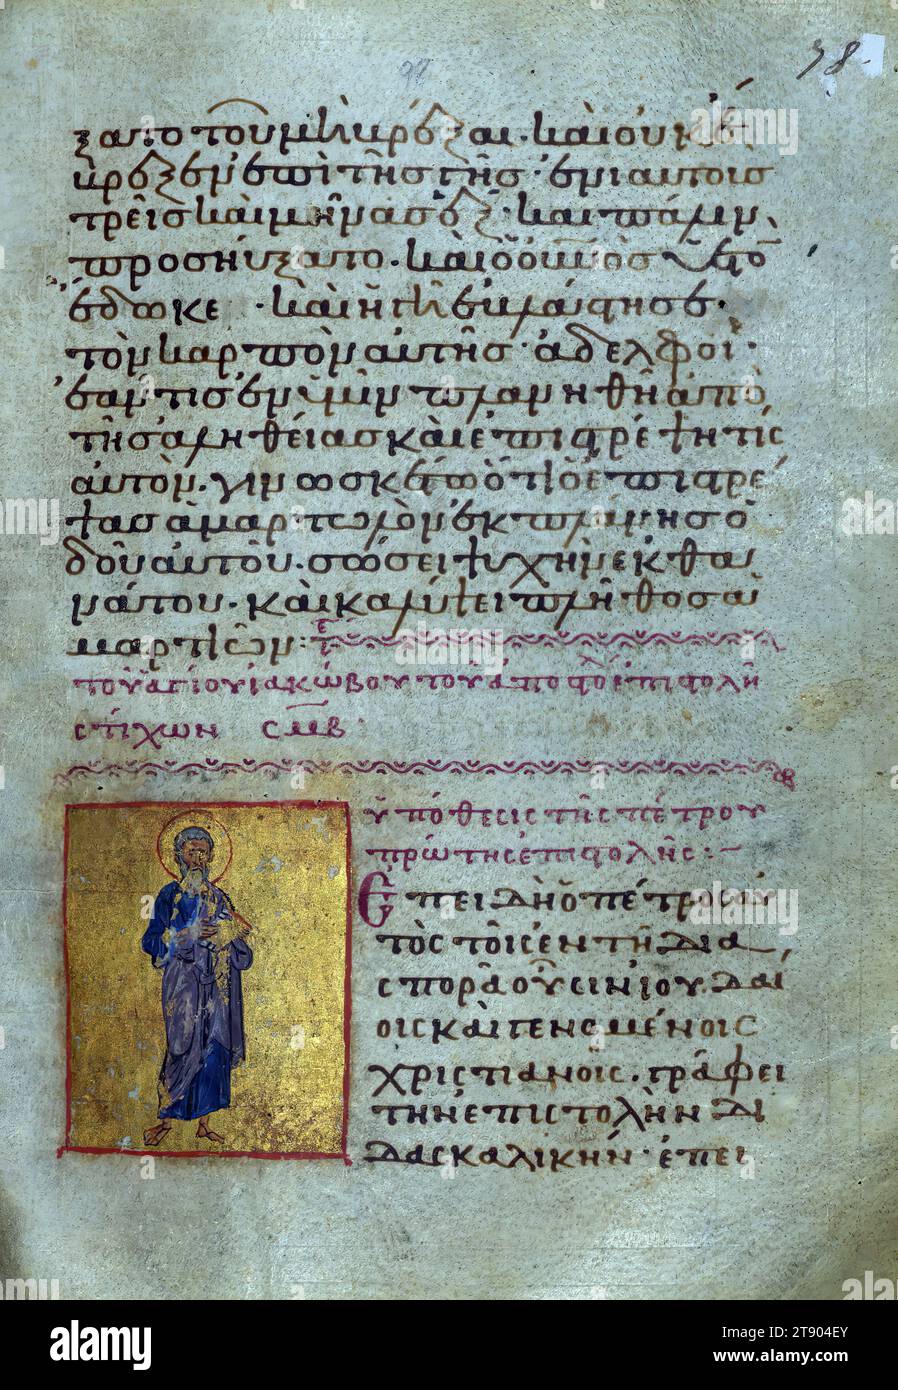 78.
97
ξατο τοῦ μὴ βρέξαι· καὶ οὐκ ἔ
βρεξεν ἐπὶ τῆς γῆς· ἐνιαυτοὺς
τρεῖς καὶ μῆνας ἕξ· καὶ πάλιν
προσηύξατο· καὶ ὁ οὐνὸς ὑετὸ
ἔδωκε· καὶ ἡ γῆ ἐβλάστησε
τὸν καρπὸν αὐτῆς· ἀδελφοί·
ἐάν τις ἐν ὑμῖν πλανηθῆ ἀπὸ
τῆς ἀληθείας καὶ ἐπιστρέψη τὶς
αὐτόν· γινωσκέτω ὅτι ὁ ἐπιστρέ
ψας ἁμαρτωλὸν ἐκ πλάνης ὁ
δοῦ αὐτοῦ· σώσει ψυχὴν ἐκ θα
νάτου· καὶ καλύψει πλῆθος ἁ
μαρτιῶν:
τοῦ ἁγίου ἰακώβου τοῦ ἀποστόλου ἐπιστολὴ
στίχων σμβ
ὑπόθεσις τῆς πέτρου
πρώτης ἐπιστολῆς:–
Ἐπειδὴ ὁ πέτρος αὐ
τὸς τοῖς ἐν τῆ δια
σπορᾶ οὖσιν ἰουδαί
οις καὶ γενομένοις
χριστιανοῖς· γράφει
τὴν ἐπιστολὴν δι
δασκαλικήν· ἐπει
alamy
Image ID: 2T904EY
www.alamy.com